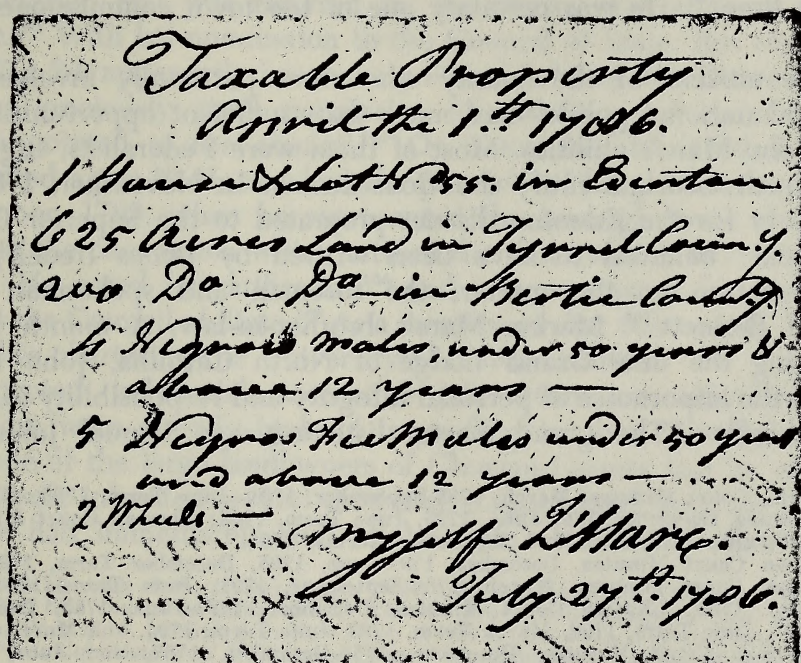 Taxable Property
April the 1.st 1786.
1 House & Lot No 55. in Edenton
625 Acres Land in Tyrrel County.
200 Do — Do — in Bertie County
4 Negroes Males, under 50 years &
above 12 years —
5 Negros FeeMales under 50 years
and above 12 years —
2 Wheels —
myself L'Marc.
July 27.th 1786.